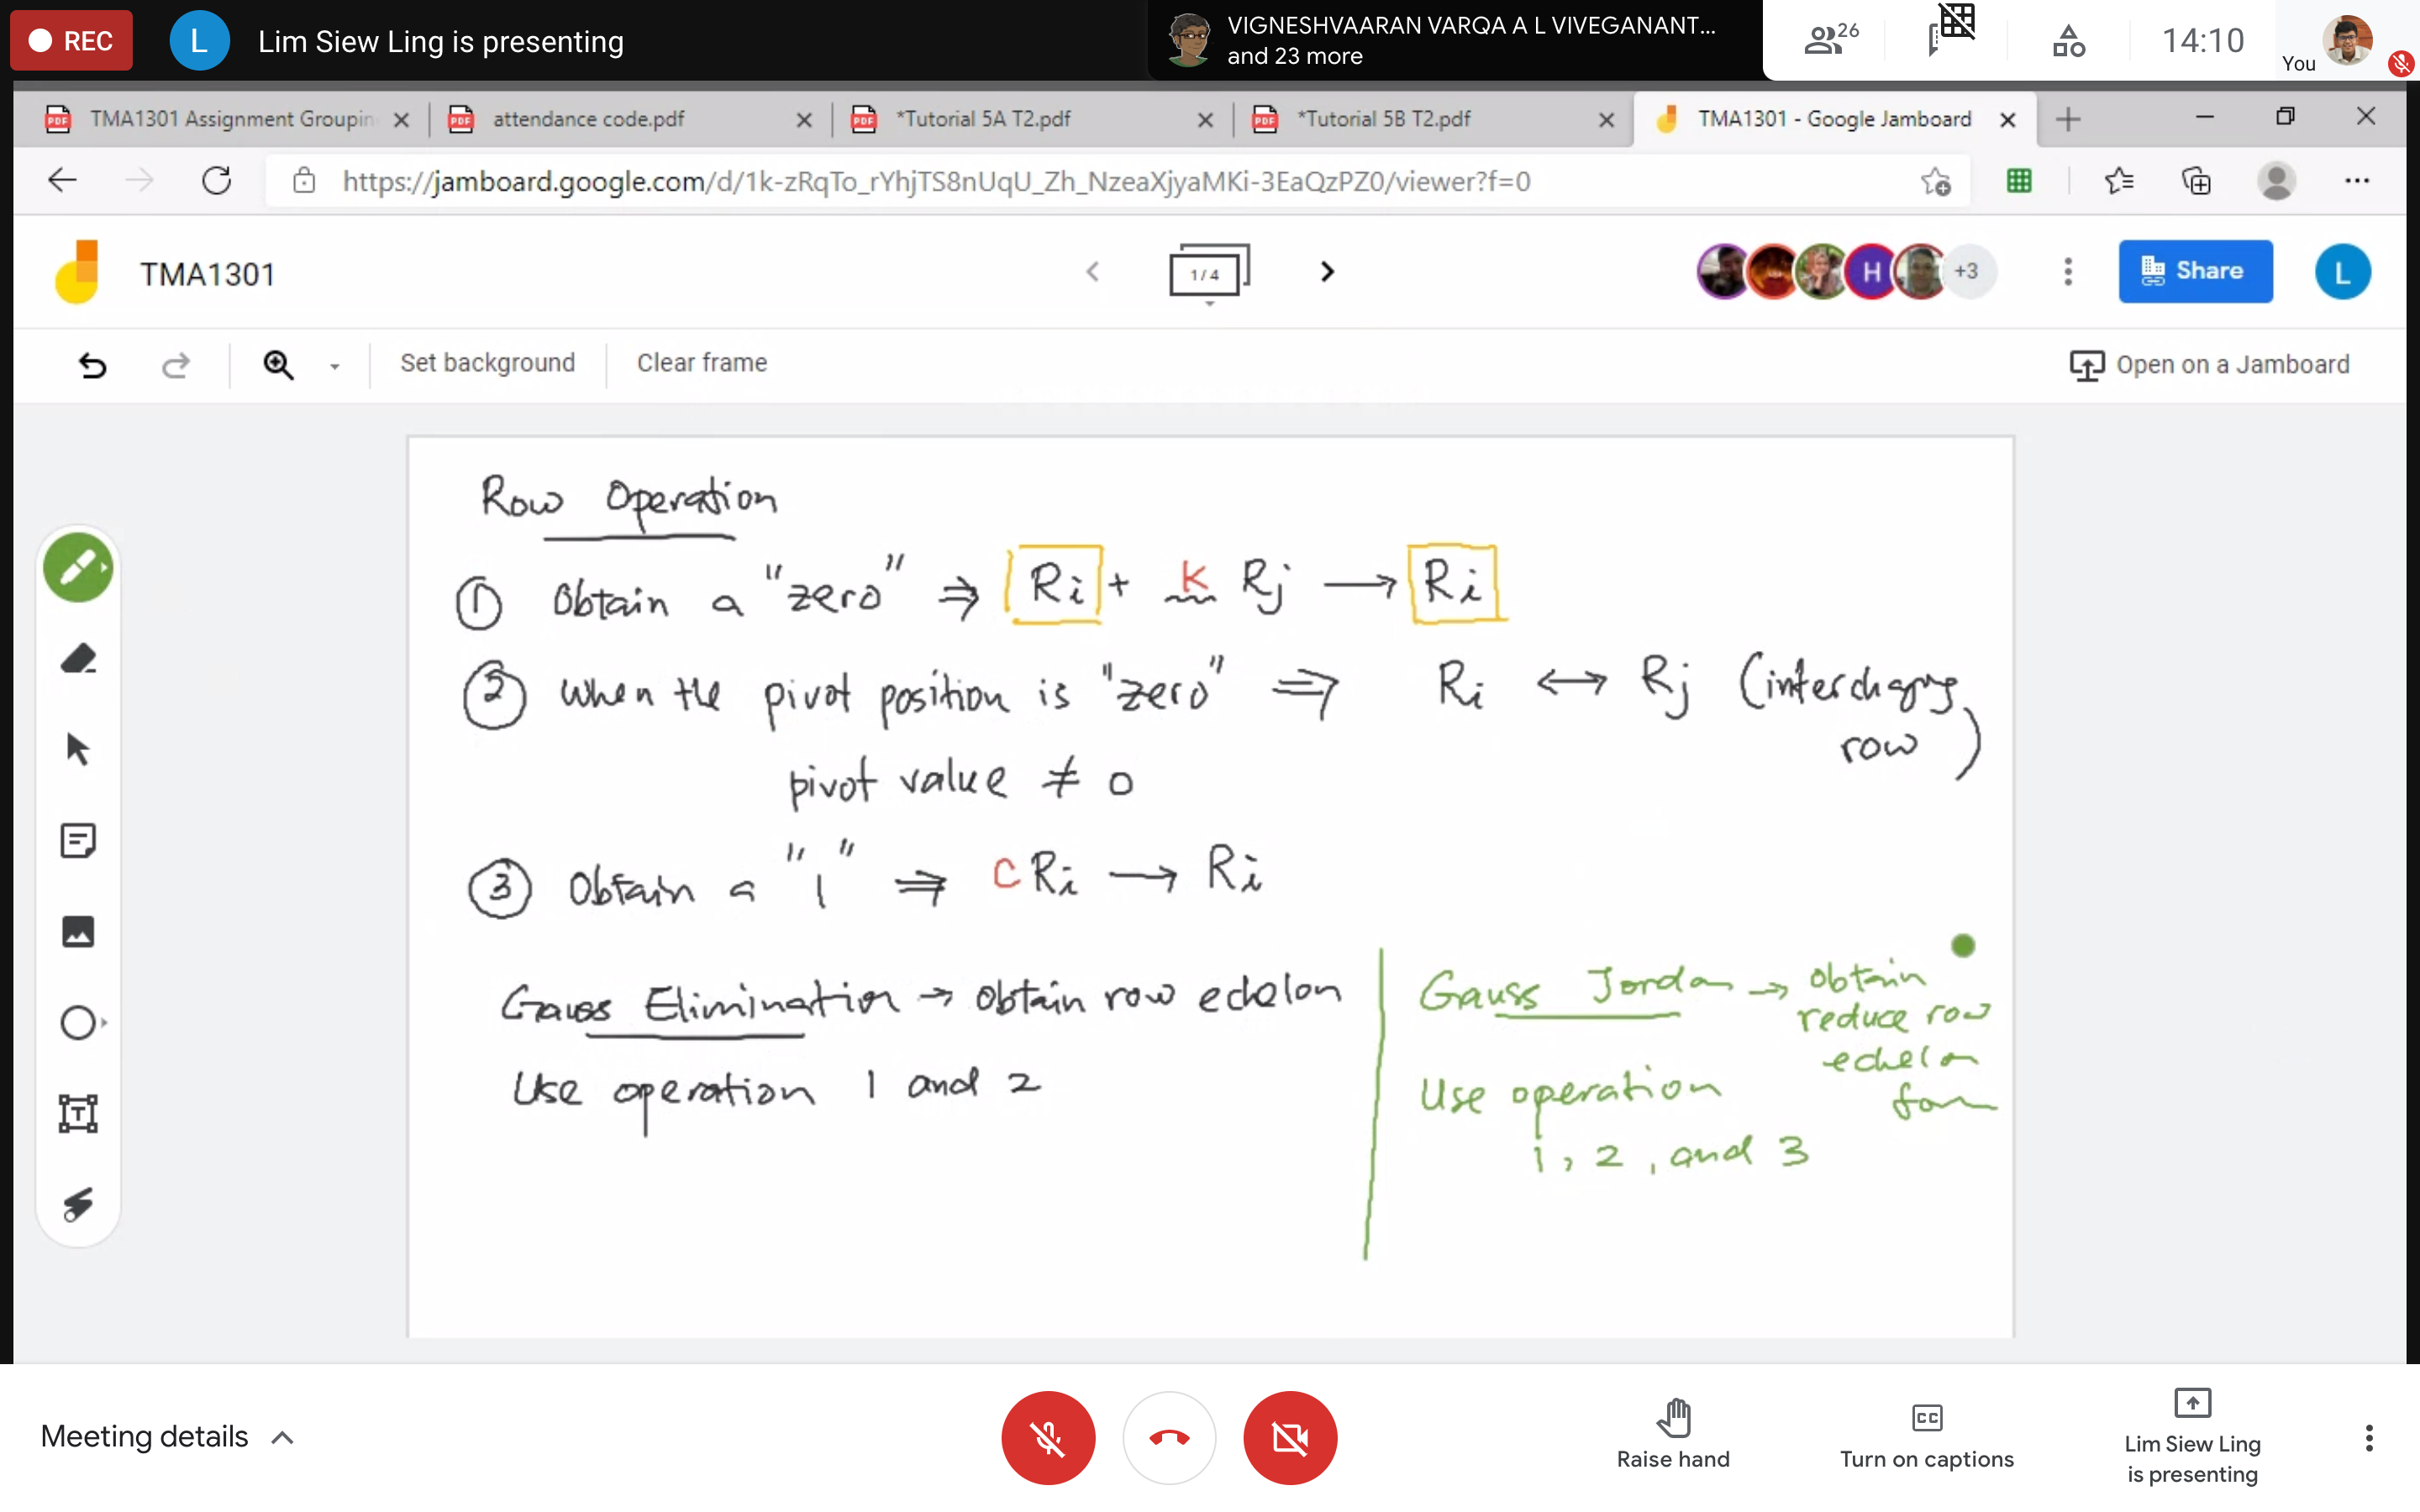 REC
L
Lim Siew Ling is presenting
VIGNESHVAARAN VARQA A L VIVEGANANT...
and 23 more
26
14:10
You
TMA1301 Assignment Groupin
attendance code.pdf
*Tutorial 5A T2.pdf
*Tutorial 5B T2.pdf
TMA1301 - Google Jamboard
https://jamboard.google.com/d/1k-zRqTo_rYhjTS8nUqU_Zh_NzeaXjyaMKi-3EaQzPZ0/viewer?f=0
TMA1301
1 / 4
H
+3
Share
L
Set background
Clear frame
Open on a Jamboard
Row Operation
① Obtain a "zero" ⇒ Ri + K Rj → Ri
② When the pivot position is "zero" ⇒ Ri ↔ Rj (interchgng
row)
pivot value ≠ 0
③ Obtain a "1" ⇒ C Ri → Ri
Gauss Elimination → Obtain row echelon
Use operation 1 and 2
Gauss Jordan → Obtain
reduce row
echelon
form
Use operation
1, 2, and 3
Meeting details
Raise hand
CC
Turn on captions
Lim Siew Ling
is presenting